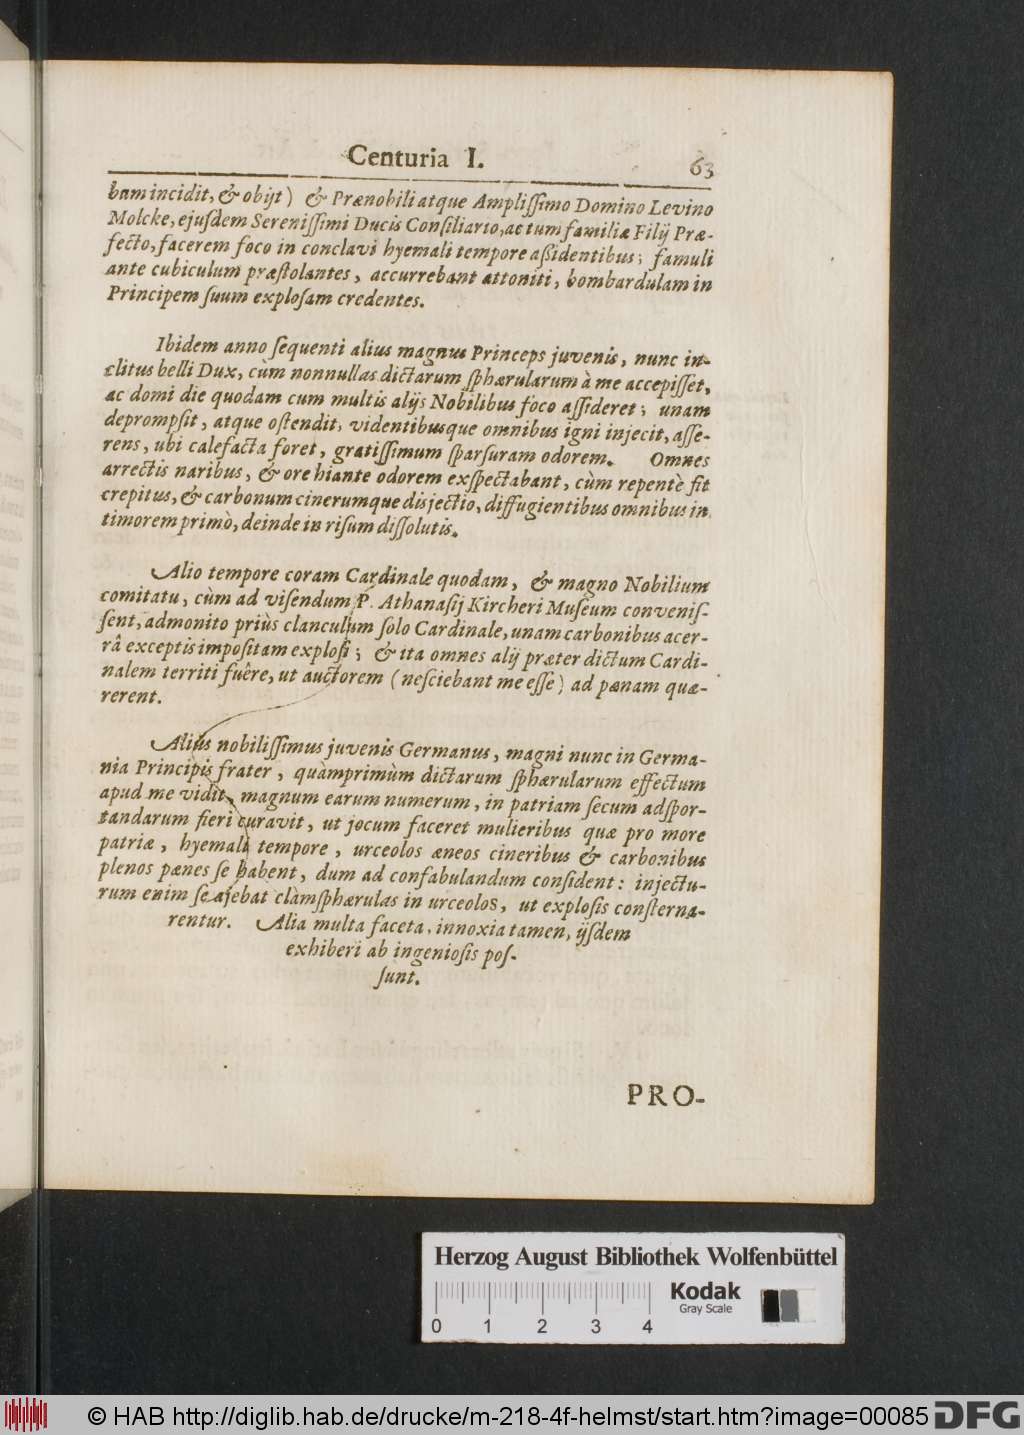 Centuria I. 63
bam incidit, & obijt) & Prænobili atque Ampliſſimo Domino Levino
Molcke, ejuſdem Sereniſſimi Ducis Conſiliario, ac tum familiæ Filij Præ-
fecto, facerem foco in conclavi hyemali tempore aßidentibus; famuli
ante cubiculum præſtolantes, accurrebant attoniti, bombardulam in
Principem ſuum exploſam credentes.
Ibidem anno ſequenti alius magnus Princeps juvenis, nunc in-
clitus belli Dux, cùm nonnullas dictarum ſphærularum à me accepiſſet,
ac domi die quodam cum multis alijs Nobilibus foco aſſideret; unam
deprompſit, atque oſtendit, videntibusque omnibus igni injecit, aſſe-
rens, ubi calefacta foret, gratiſſimum ſparſuram odorem. Omnes
arrectis naribus, & ore hiante odorem exſpectabant, cùm repentè fit
crepitus, & carbonum cinerumque disjectio, diffugientibus omnibus in
timorem primò, deinde in riſum diſſolutis.
Alio tempore coram Cardinale quodam, & magno Nobilium
comitatu, cùm ad viſendum P. Athanaſij Kircheri Muſeum conveniſ-
ſent, admonito priùs clanculum ſolo Cardinale, unam carbonibus acer-
râ exceptis impoſitam exploſi; & ita omnes alij præter dictum Cardi-
nalem territi fuêre, ut auctorem (neſciebant me eſſe) ad pœnam quæ-
rerent.
Alius nobiliſſimus juvenis Germanus, magni nunc in Germa-
nia Principis frater, quàmprimùm dictarum ſphærularum effectum
apud me vidit, magnum earum numerum, in patriam ſecum adſpor-
tandarum fieri curavit, ut jocum faceret mulieribus quæ pro more
patriæ, hyemali tempore, urceolos æneos cineribus & carbonibus
plenos pœnes ſe habent, dum ad confabulandum conſident: injectu-
rum enim ſe ajebat clàm ſphærulas in urceolos, ut exploſis conſterna-
rentur. Alia multa faceta, innoxia tamen, ijſdem
exhiberi ab ingenioſis poſ-
ſunt.
PRO-
Herzog August Bibliothek Wolfenbüttel
Kodak
Gray Scale
0 1 2 3 4
© HAB http://diglib.hab.de/drucke/m-218-4f-helmst/start.htm?image=00085 DFG